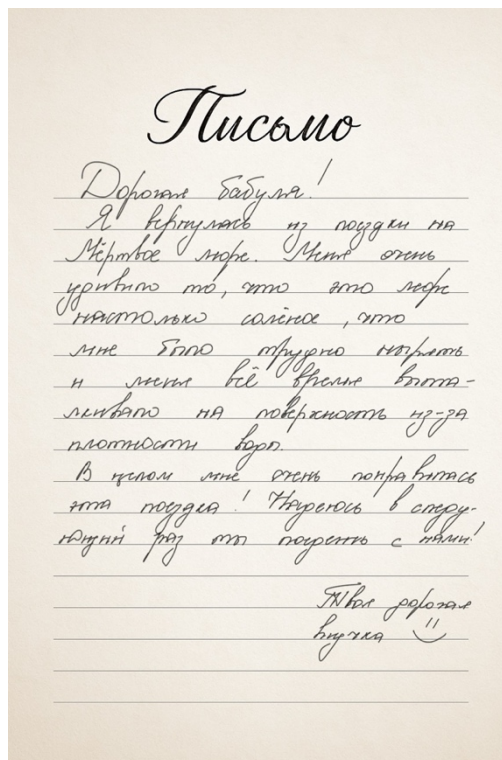 Письмо
Дорогая бабуля!
Я вернулась из поездки на
Мёртвое море. Меня очень
удивило то, что это море
настолько солёное, что
мне было трудно нырять
и меня всё время выта-
лкивало на поверхность из-за
плотности воды.
В целом мне очень понравилась
эта поездка! Надеюсь в следу-
ющий раз ты поедешь с нами!
Твоя дорогая
внучка